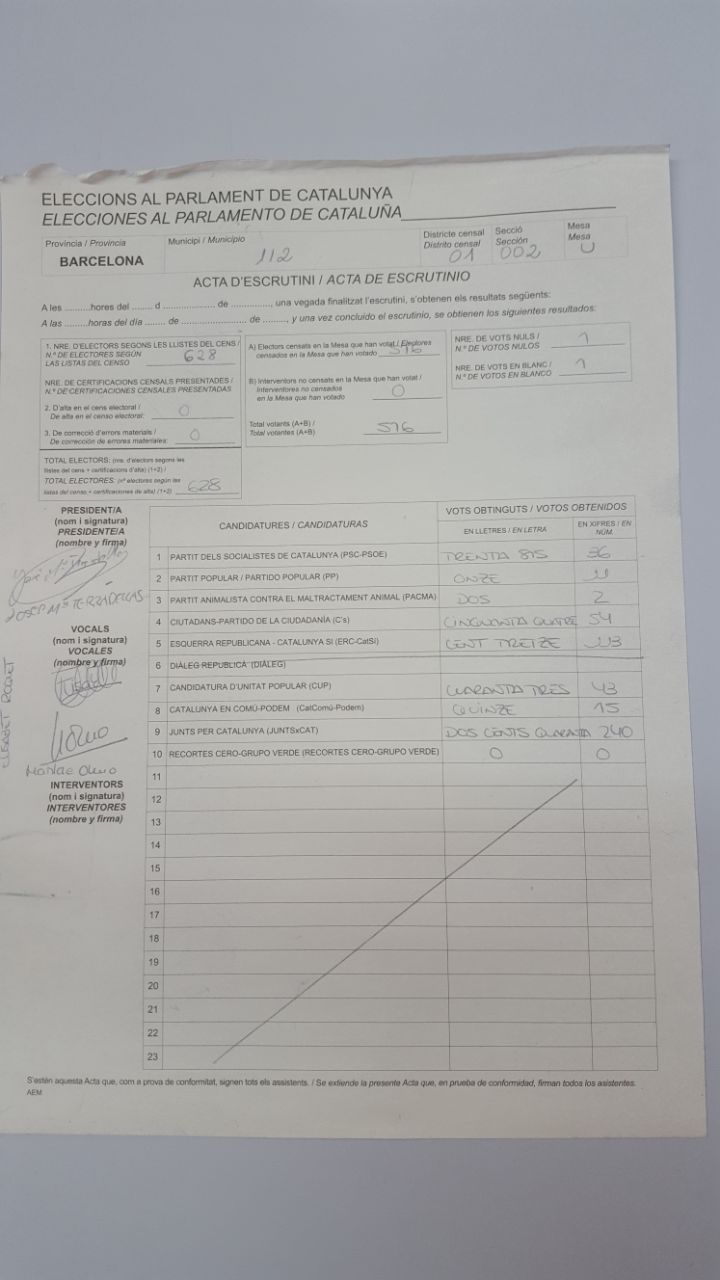 ELECCIONS AL PARLAMENT DE CATALUNYA
ELECCIONES AL PARLAMENTO DE CATALUÑA
Provincia / Provincia
BARCELONA
Municipi / Municipio
112
Districte censal
Distrito censal
01
Secció
Sección
002
Mesa
Mesa
U
ACTA D'ESCRUTINI / ACTA DE ESCRUTINIO
A les .........hores del ........ d .................... de .............., una vegada finalitzat l'escrutini, s'obtenen els resultats següents:
A las .........horas del día ....... de .................... de ........, y una vez concluido el escrutinio, se obtienen los siguientes resultados:
1. NRE. D'ELECTORS SEGONS LES LLISTES DEL CENS /
N.º DE ELECTORES SEGÚN
LAS LISTAS DEL CENSO 628
NRE. DE CERTIFICACIONS CENSALS PRESENTADES /
N.º DE CERTIFICACIONES CENSALES PRESENTADAS
2. D'alta en el cens electoral /
De alta en el censo electoral: 0
3. De correcció d'errors materials /
De corrección de errores materiales: 0
TOTAL ELECTORS: (nre. d'electors segons les
llistes del cens + certificacions d'alta) (1+2) /
TOTAL ELECTORES: (nº electores según las
listas del censo + certificaciones de alta) (1+2) 628
A) Electors censats en la Mesa que han votat / Electores
censados en la Mesa que han votado 516
B) Interventors no censats en la Mesa que han votat /
Interventores no censados
en la Mesa que han votado 0
Total votants (A+B) /
Total votantes (A+B) 516
NRE. DE VOTS NULS /
N.º DE VOTOS NULOS 1
NRE. VOTS EN BLANC /
N.º DE VOTOS EN BLANCO 1
PRESIDENT/A
(nom i signatura)
PRESIDENTE/A
(nombre y firma)
JOSEP Mª TERRADELLAS
VOCALS
(nom i signatura)
VOCALES
(nombre y firma)
ELISABET ROQUET
Olmo
Olmo
INTERVENTORS
(nom i signatura)
INTERVENTORES
(nombre y firma)
CANDIDATURES / CANDIDATURAS
VOTS OBTINGUTS / VOTOS OBTENIDOS
EN LLETRES / EN LETRA
EN XIFRES / EN
NÚM.
1 PARTIT DELS SOCIALISTES DE CATALUNYA (PSC-PSOE) TRENTA SIS 36
2 PARTIT POPULAR / PARTIDO POPULAR (PP) ONZE 11
3 PARTIT ANIMALISTA CONTRA EL MALTRACTAMENT ANIMAL (PACMA) DOS 2
4 CIUTADANS-PARTIDO DE LA CIUDADANÍA (C's) CINQUANTA QUATRE 54
5 ESQUERRA REPUBLICANA - CATALUNYA SÍ (ERC-CatSí) CENT TRETZE 113
6 DIÀLEG REPÚBLICA (DIÀLEG)
7 CANDIDATURA D'UNITAT POPULAR (CUP) QUARANTA TRES 43
8 CATALUNYA EN COMÚ-PODEM (CatComú-Podem) QUINZE 15
9 JUNTS PER CATALUNYA (JUNTSxCAT) DOS CENTS QUARANTA 240
10 RECORTES CERO-GRUPO VERDE (RECORTES CERO-GRUPO VERDE) 0 0
11
12
13
14
15
16
17
18
19
20
21
22
23
S'estén aquesta Acta que, com a prova de conformitat, signen tots els assistents. / Se extiende la presente Acta que, en prueba de conformidad, firman todos los asistentes.
AEM